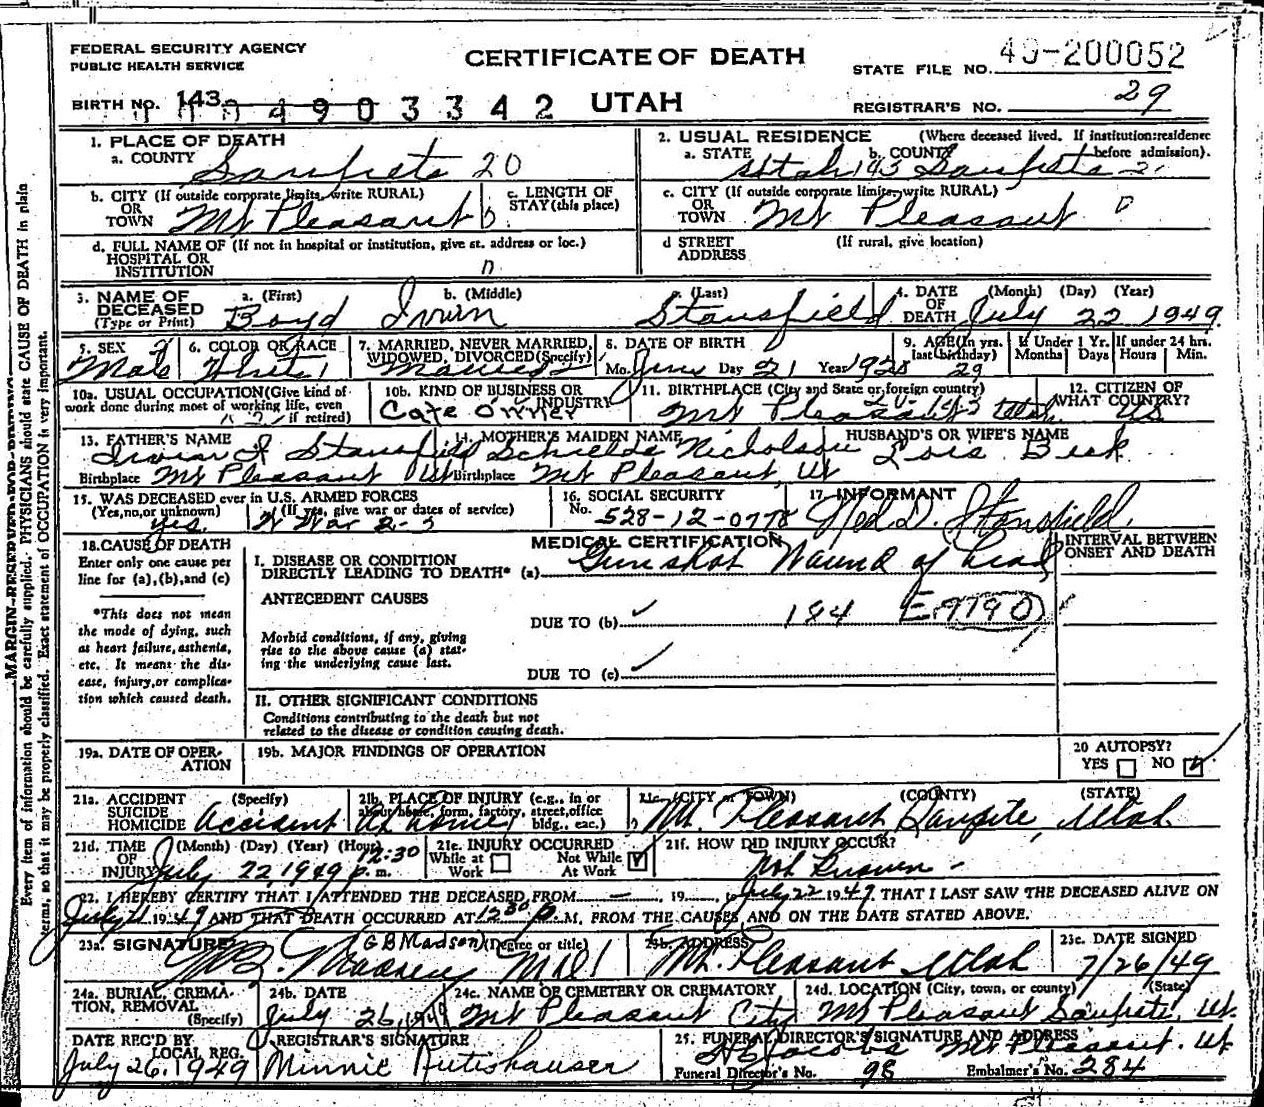 FEDERAL SECURITY AGENCY
PUBLIC HEALTH SERVICE
CERTIFICATE OF DEATH
STATE FILE NO. 49-200052
BIRTH NO. 143 0490 3342 UTAH
REGISTRAR'S NO. 29
MARGIN RESERVED FOR BINDING
Every item of information should be carefully supplied. PHYSICIANS should state CAUSE OF DEATH in plain
terms, so that it may be properly classified. Exact statement of OCCUPATION is very important.
1. PLACE OF DEATH
a. COUNTY Sanpete 20
2. USUAL RESIDENCE (Where deceased lived. If institution: residence before admission).
a. STATE Utah 143 b. COUNTY Sanpete
b. CITY (If outside corporate limits, write RURAL) OR TOWN Mt Pleasant
c. LENGTH OF STAY (this place)
c. CITY (If outside corporate limits, write RURAL) OR TOWN Mt Pleasant
d. FULL NAME OF (If not in hospital or institution, give st. address or loc.) HOSPITAL OR INSTITUTION
d STREET ADDRESS (If rural, give location)
3. NAME OF DECEASED (Type or Print) a. (First) Boyd b. (Middle) Irwin c. (Last) Stansfield
4. DATE OF DEATH (Month) (Day) (Year) July 22 1949
5. SEX Male
6. COLOR OR RACE White
7. MARRIED, NEVER MARRIED, WIDOWED, DIVORCED (Specify) Married
8. DATE OF BIRTH Mo. June Day 21 Year 1920
9. AGE (In yrs. last birthday) 29
If Under 1 Yr. Months Days If under 24 hrs. Hours Min.
10a. USUAL OCCUPATION (Give kind of work done during most of working life, even if retired)
10b. KIND OF BUSINESS OR INDUSTRY Cafe Owner
11. BIRTHPLACE (City and State or foreign country) Mt Pleasant Utah
12. CITIZEN OF WHAT COUNTRY? US
13. FATHER'S NAME Irwin I Stansfield
14. MOTHER'S MAIDEN NAME Nicholson
HUSBAND'S OR WIFE'S NAME Lois Beck
Birthplace Mt Pleasant Ut Birthplace Mt Pleasant, Ut
15. WAS DECEASED ever in U.S. ARMED FORCES (Yes, no, or unknown) yes (If yes, give war or dates of service) W War 2
16. SOCIAL SECURITY No. 528-12-0778
17. INFORMANT Ned D. Stansfield
18. CAUSE OF DEATH
Enter only one cause per line for (a), (b), and (c)
*This does not mean the mode of dying, such as heart failure, asthenia, etc. It means the disease, injury, or complication which caused death.
MEDICAL CERTIFICATION
INTERVAL BETWEEN ONSET AND DEATH
I. DISEASE OR CONDITION DIRECTLY LEADING TO DEATH* (a) Gun shot Wound of head
ANTECEDENT CAUSES
Morbid conditions, if any, giving rise to the above cause (a) stating the underlying cause last.
DUE TO (b) 184 E9190
DUE TO (c)
II. OTHER SIGNIFICANT CONDITIONS
Conditions contributing to the death but not related to the disease or condition causing death.
19a. DATE OF OPERATION
19b. MAJOR FINDINGS OF OPERATION
20 AUTOPSY? YES NO
21a. ACCIDENT SUICIDE HOMICIDE (Specify) Accident
21b. PLACE OF INJURY (e.g., in or about home, farm, factory, street, office bldg., etc.) at home
21c. (CITY or TOWN) (COUNTY) (STATE) Mt. Pleasant Sanpete, Utah
21d. TIME OF INJURY (Month) (Day) (Year) (Hour) July 22 1949 12:30 p. m.
21e. INJURY OCCURRED While at Work Not While At Work
21f. HOW DID INJURY OCCUR? Not Known
22. I HEREBY CERTIFY THAT I ATTENDED THE DECEASED FROM — , 19 , to July 22 1949, THAT I LAST SAW THE DECEASED ALIVE ON
July 21 1949 AND THAT DEATH OCCURRED AT 12 30 p M, FROM THE CAUSES AND ON THE DATE STATED ABOVE.
23a. SIGNATURE (G B Madsen) (Degree or title) G B. Madsen MD
23b. ADDRESS Mt. Pleasant Utah
23c. DATE SIGNED 7/26/49
24a. BURIAL, CREMATION, REMOVAL (Specify)
24b. DATE July 26, 1949
24c. NAME OF CEMETERY OR CREMATORY Mt Pleasant City
24d. LOCATION (City, town, or county) (State) Mt Pleasant Sanpete, Ut.
DATE REC'D BY LOCAL REG. July 26, 1949
REGISTRAR'S SIGNATURE Minnie Rutishauser
25. FUNERAL DIRECTOR'S SIGNATURE AND ADDRESS Jacobs Mt Pleasant. Ut
Funeral Director's No. 98 Embalmer's No. 284